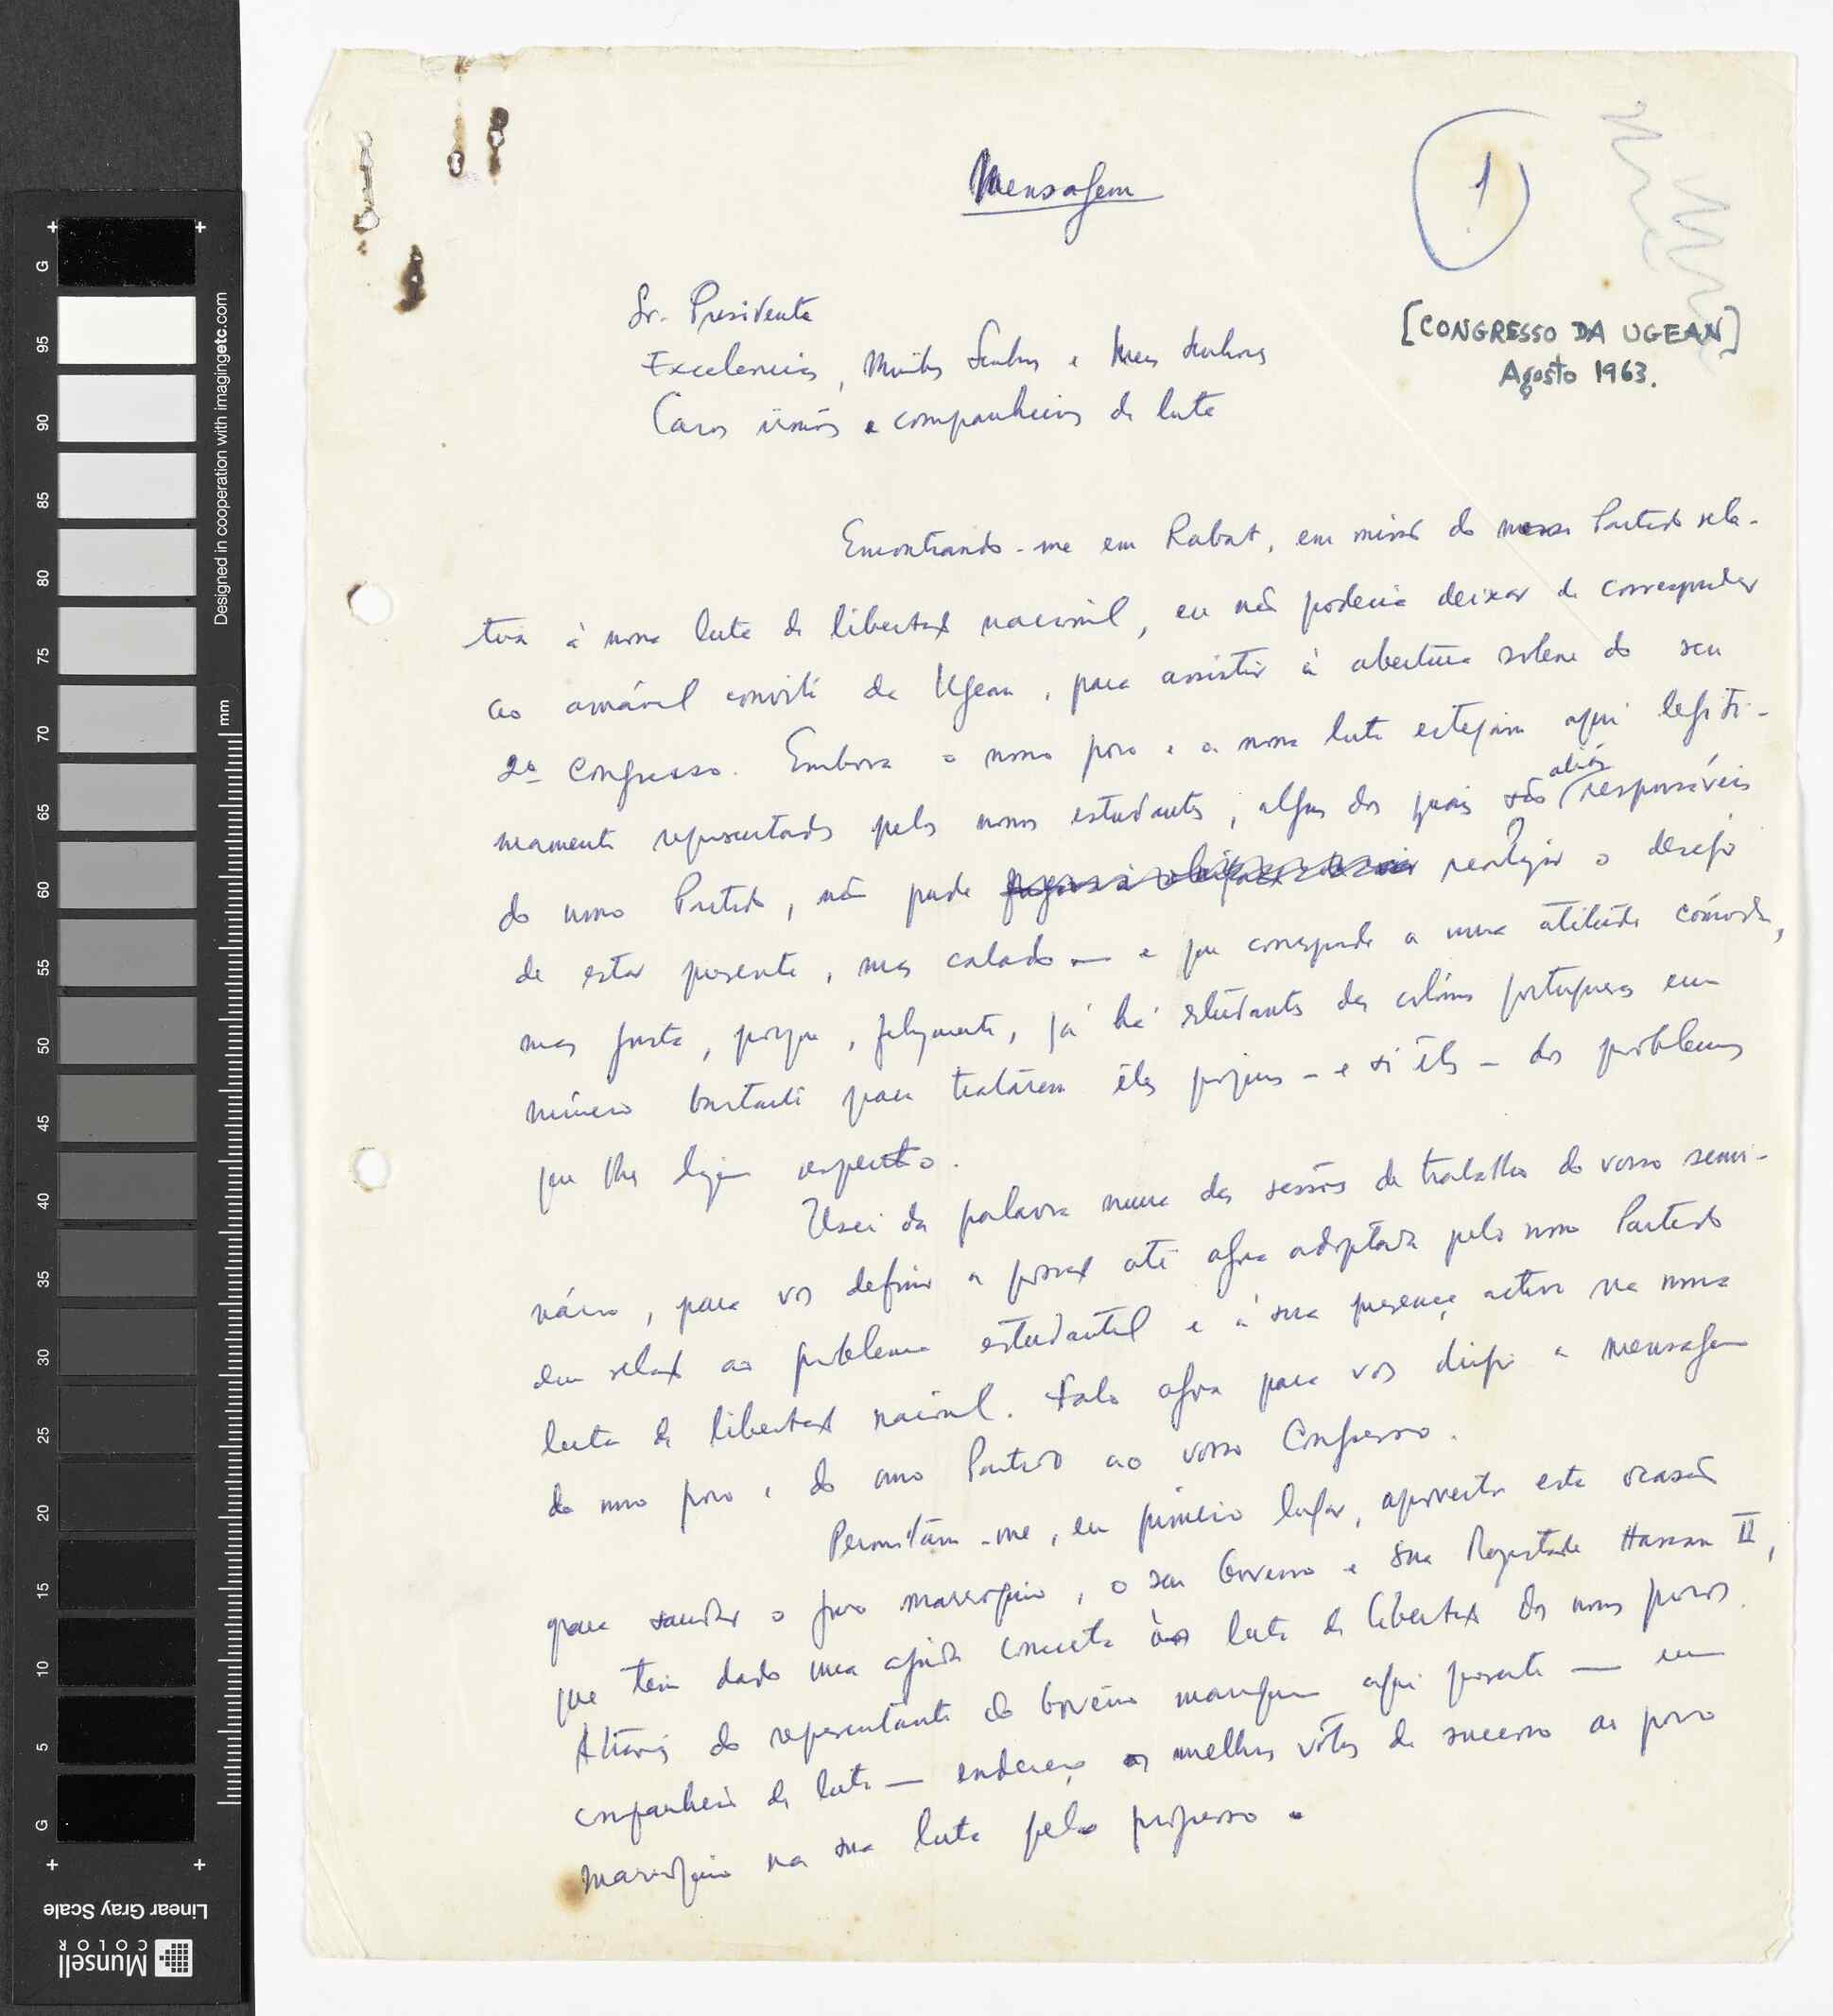 Mensagem
1
[CONGRESSO DA UGEAN]
Agosto 1963.
Sr. Presidente
Excelencias, Minhas Senhoras e Meus Senhores
Caros irmãos e companheiros de luta
Encontrando-me em Rabat, em missão do nosso Partido rela-
tiva à nossa luta de libertação nacional, eu não poderia deixar de corresponder
ao amável convite da Ugean, para assistir à abertura solene do seu
2º Congresso. Embora o nosso povo e a nossa luta estejam aqui legiti-
mamente representados pelos nossos estudantes, alguns dos quais são aliás responsáveis
do nosso Partido, não pude realizar o desejo
de estar presente, mas calado — o que corresponde a uma atitude cómoda,
mas justa, porque, felizmente, já há estudantes das colónias portuguesas em
número bastante para tratárem êles próprios - e só êles - dos problemas
que lhes dizem respeito.
Usei da palavra numa das sessões de trabalho do vosso semi-
nário, para vos definir a posição até agora adoptada pelo nosso Partido
em relação ao problema estudantil e à sua presença activa na nossa
luta de libertação nacional. Falo agora para vos dirigir a mensagem
do nosso povo e do nosso Partido ao vosso Congresso.
Permitam-me, em primeiro lugar, aproveitar esta ocasião
para saudar o povo marroquino, o seu Governo e Sua Magestade Hassan II,
que tem dado uma ajuda concreta à luta de libertação dos nossos povos.
Através do representante do Govêrno marroquino aqui presente — um
companheiro de luta — endereço os melhores vótos de sucesso ao povo
marroquino na sua luta pelo progresso.
Designed in cooperation with imagingetc.com
mm
G
95
90
85
80
75
70
65
60
55
50
45
40
35
30
25
20
15
10
5
G
Linear Gray Scale
Munsell
COLOR